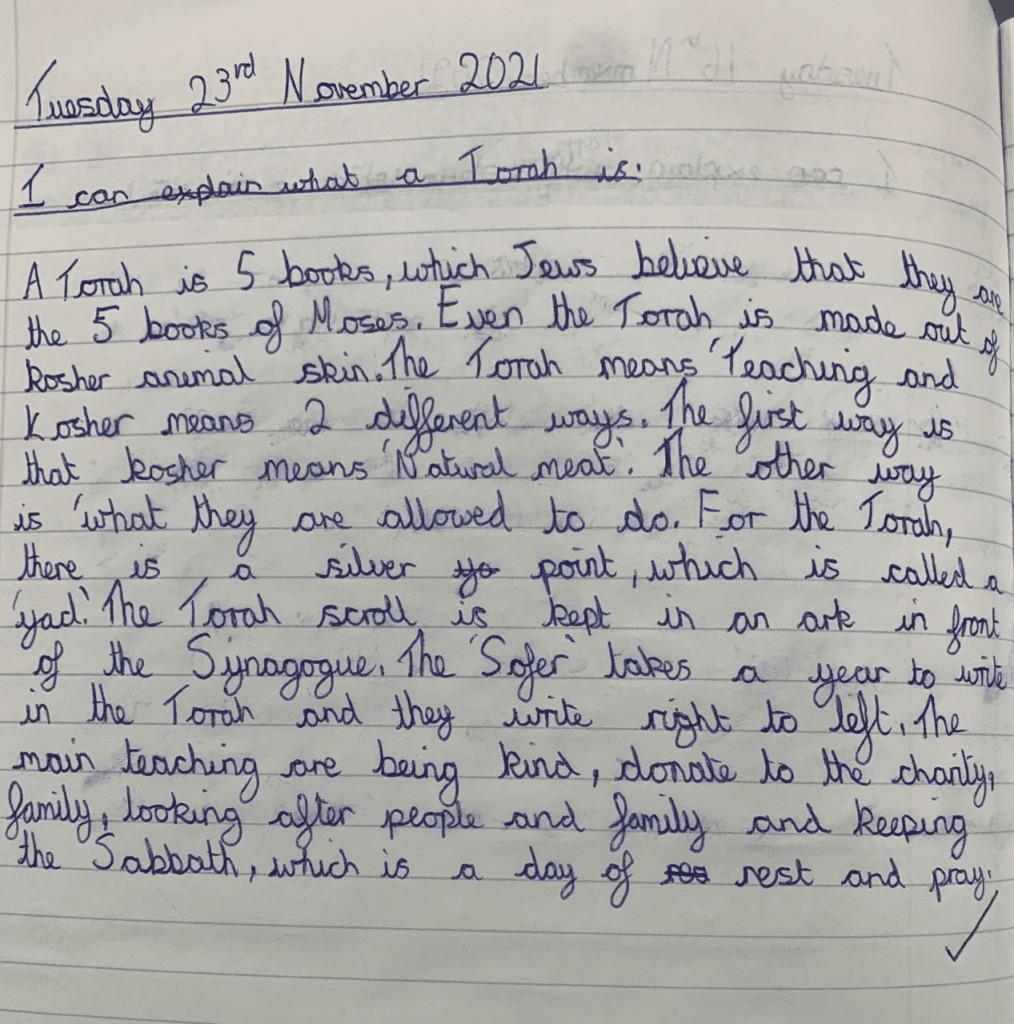 Tuesday 23rd November 2021
I can explain what a Torah is:
A Torah is 5 books, which Jews believe that they are
the 5 books of Moses. Even the Torah is made out of
kosher animal skin. The Torah means 'Teaching and
Kosher means 2 different ways. The first way is
that kosher means 'Natural meat'. The other way
is 'what they are allowed to do. For the Torah,
there is a silver yo point, which is called a
'yad.' The Torah scroll is kept in an ark in front
of the Synagogue. The 'Sofer' takes a year to write
in the Torah and they write right to left. The
main teaching are being kind, donate to the charity,
family, looking after people and family and keeping
the Sabbath, which is a day of rest and pray.